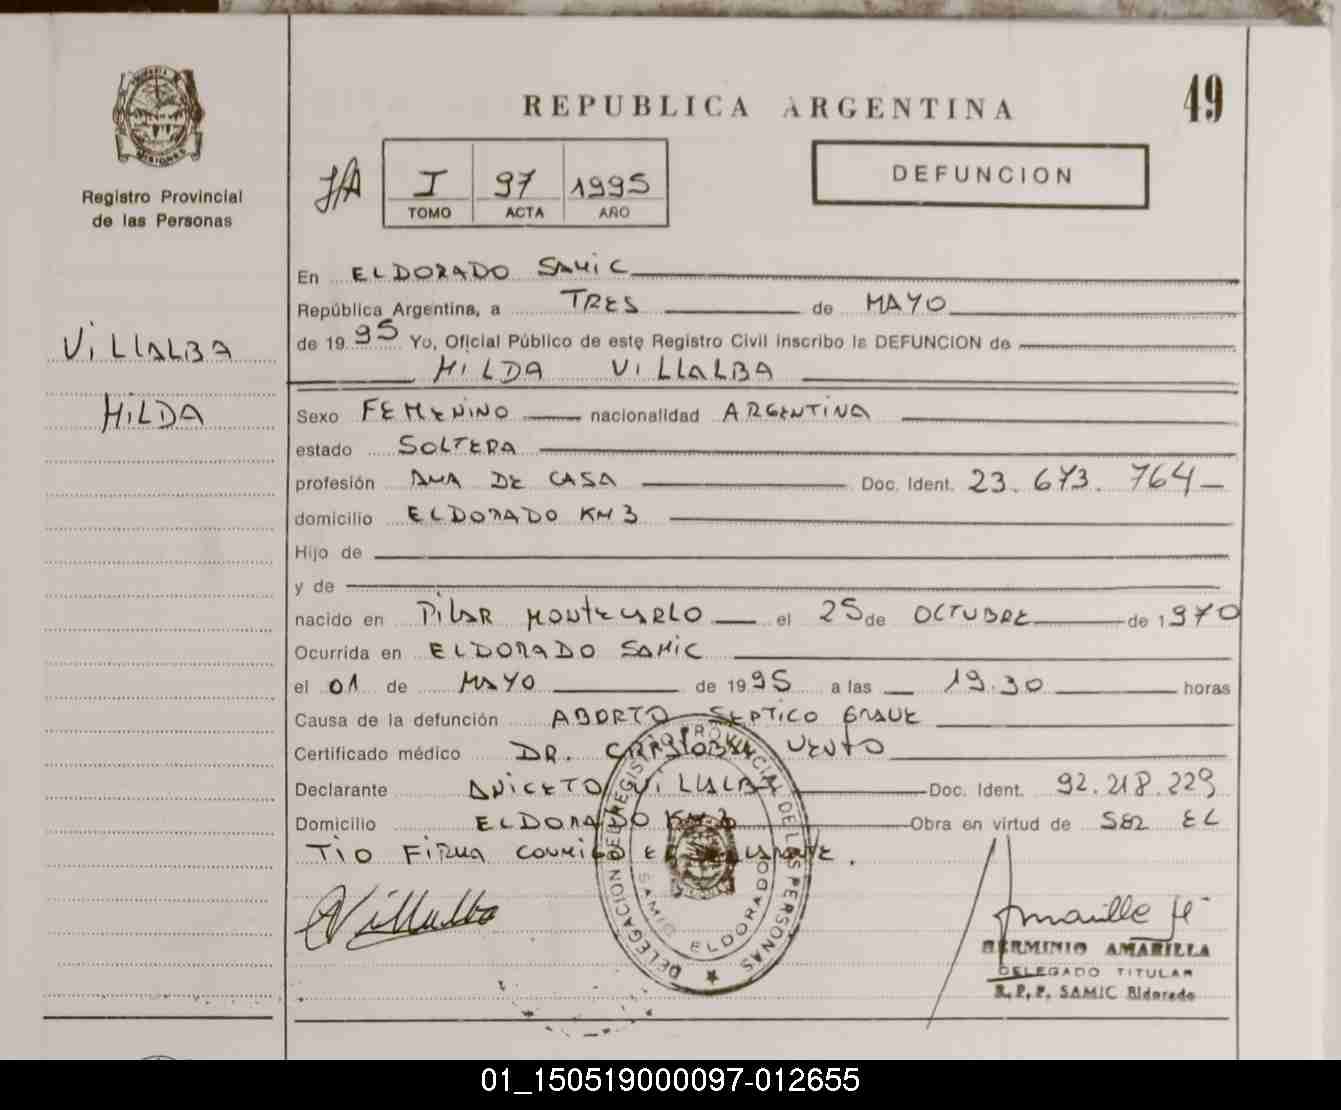 REPUBLICA ARGENTINA
49
PROVINCIA DE MISIONES
Registro Provincial
de las Personas
I 97 1995
TOMO ACTA AÑO
DEFUNCION
VILLALBA
HILDA
En ELDORADO SAMIC
República Argentina, a TRES de MAYO
de 1995 Yo, Oficial Público de este Registro Civil inscribo la DEFUNCION de
HILDA VILLALBA
Sexo FEMENINO nacionalidad ARGENTINA
estado SOLTERA
profesión AMA DE CASA Doc. Ident. 23.673.764
domicilio ELDORADO KM 3
Hijo de
y de
nacido en PILAR MONTECARLO el 25 de OCTUBRE de 1970
Ocurrida en ELDORADO SAMIC
el 01 de MAYO de 1995 a las 19.30 horas
Causa de la defunción ABORTO SEPTICO GRAVE
Certificado médico DR. VENTO
Declarante ANICETO VILLALBA Doc. Ident. 92.218.229
Domicilio ELDORADO KM 3 Obra en virtud de SER EL
TIO FIRMA CONMIGO EL DECLARANTE.
DELEGACION DEL REGISTRO PROVINCIAL DE LAS PERSONAS
SAMIC ELDORADO
Villalba
Amarilla H
HERMINIO AMARILLA
DELEGADO TITULAR
R.P.P. SAMIC Eldorado
01_150519000097-012655